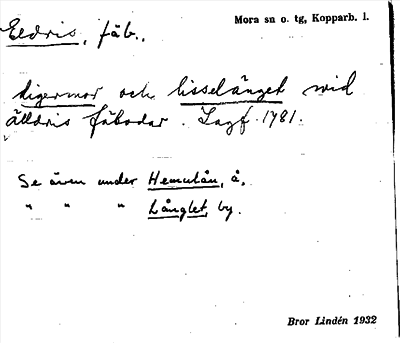 Eldris, fäb.
Mora sn o. tg, Kopparb. l.
digermor och lisselänget wid
älldris fäbodar. Lagf. 1781.
Se även under Hemulån, å.
" " " Långlet, by.
Bror Lindén 1932